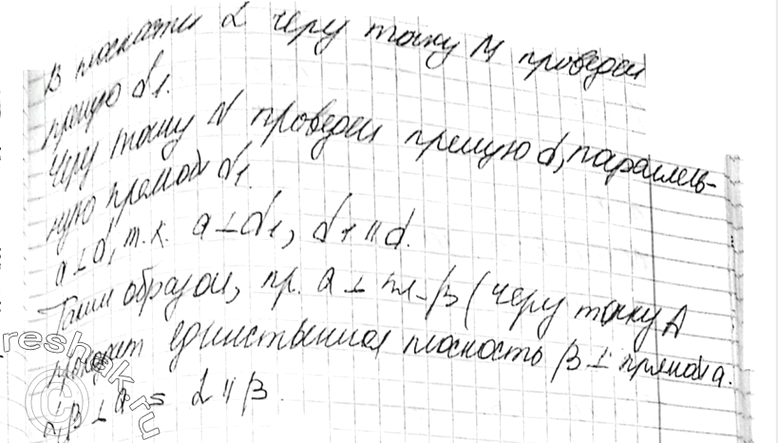 В плоскости α через точку M проведем
прямую d1.
Через точку N проведем прямую d, параллель-
ную прямой d1.
a⊥d, т.к. a⊥d1, d1 || d.
Таким образом, пр. a ⊥ пл-β (через точку A
проходит единственная плоскость β ⊥ прямой a.
β ⊥ a = α || β.
reshak.ru